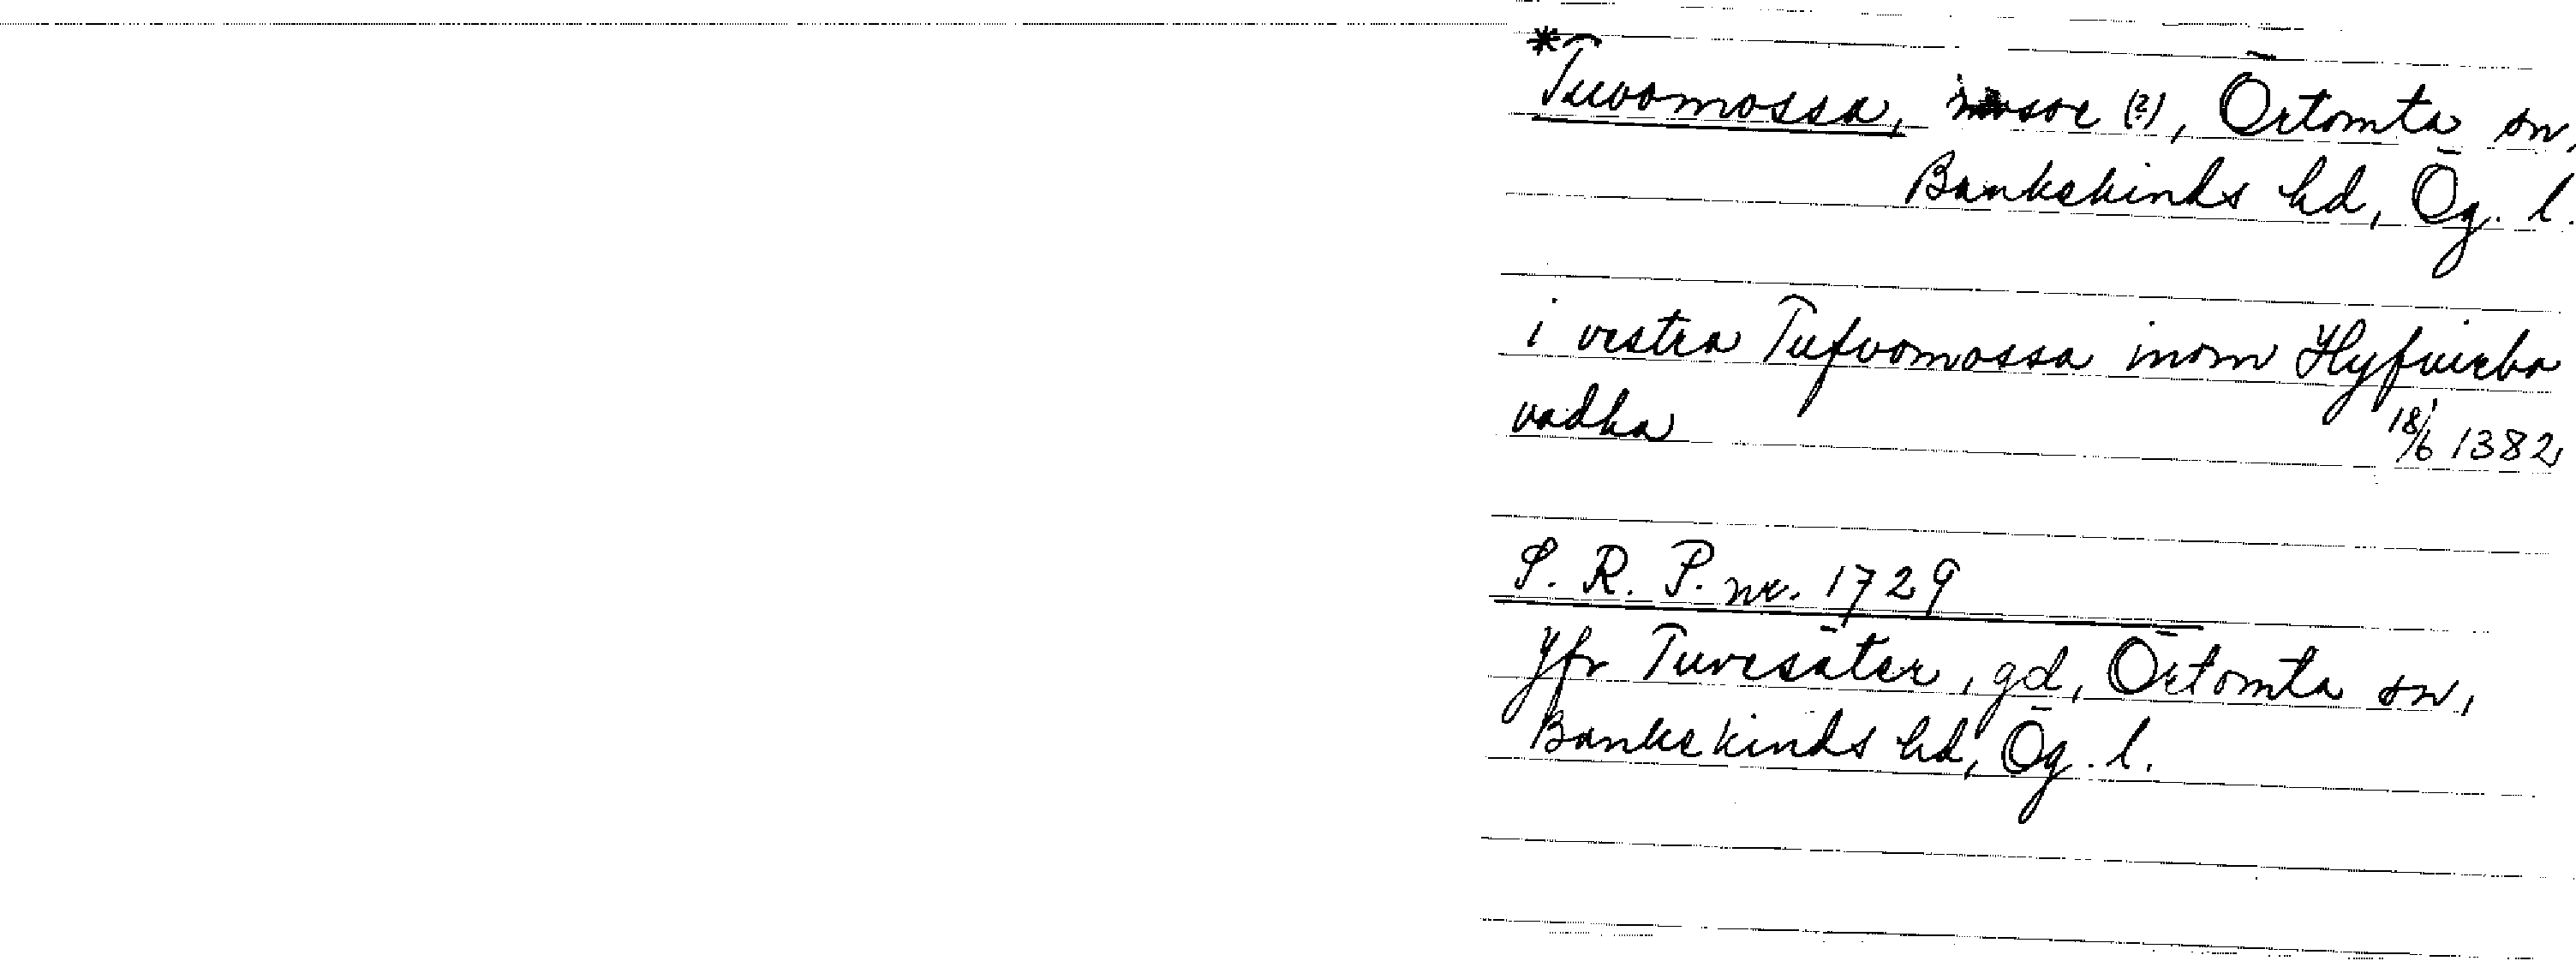 *Tuvomossa, mosse (?), Örtomta sn,
Bankekinds hd, Ög. l.
i vestra Tufvomossa inom Hyfvirba
vadha 18/6 1382
S. R. P. nr. 1729
Jfr Tuvesäter, gd, Örtomta sn,
Bankekinds hd, Ög. l.